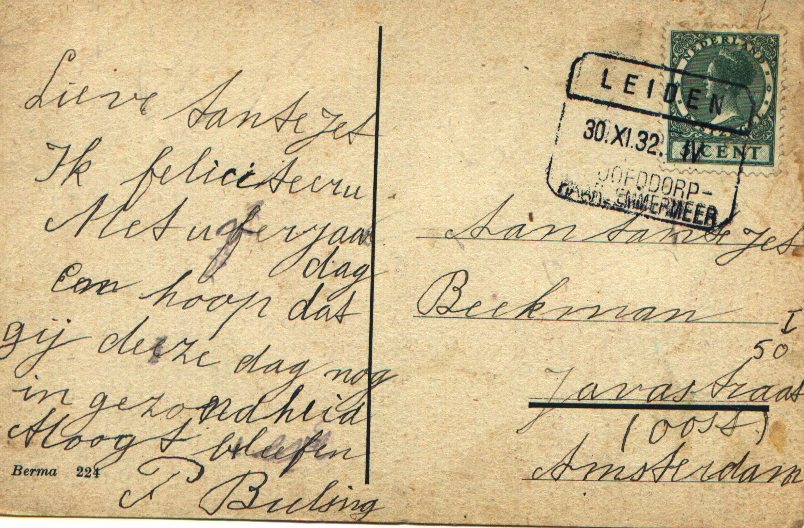 Lieve tante Jet
Ik feliciteeru
Met u ferjaa
dag
en hoop dat
gij deze dag nog
in gezondheid
Moogt beleefen
P Bulsing
Berma 224
NEDERLAND
CENT
LEIDEN
30.XI.32. IV
HOOFDDORP-
HAARLEMMERMEER
Aan tante Jet
Beekman I
50
Javastraat
(Oost)
Amsterdam